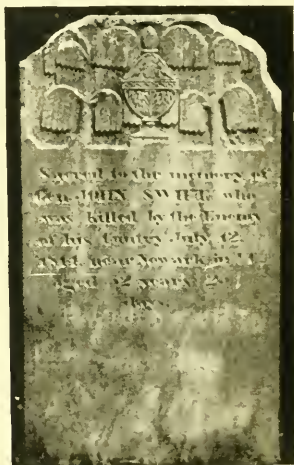 Sacred to the memory of
Gen. JOHN SWIFT, who
was killed by the Enemy
of his Cuntry July 12.
1814. near Newark in
aged 52 years 2
days.